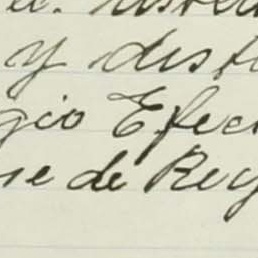 y dist
gio Efec
se de Rey